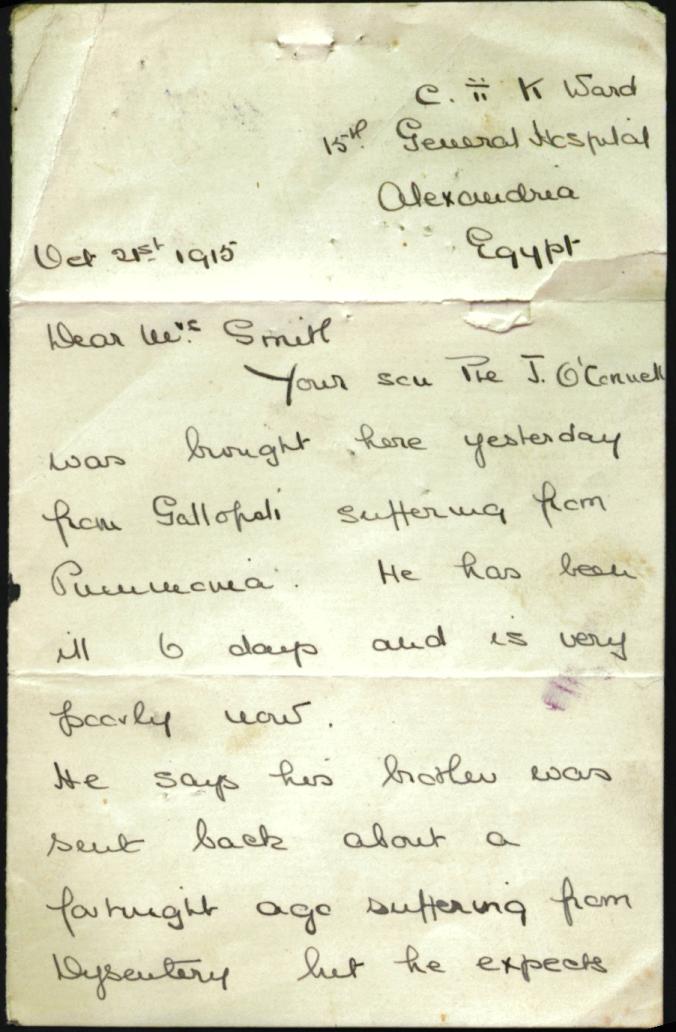 C. II K Ward
15th General Hospital
Alexandria
Egypt
Oct 21st 1915
Dear Mrs Smith
Your son Pte J. O'Connell
was brought here yesterday
from Gallopoli suffering from
Pnumonia. He has been
ill 6 days and is very
poorly now.
He says his brother was
sent back about a
fortnight ago suffering from
Dysentery but he expects